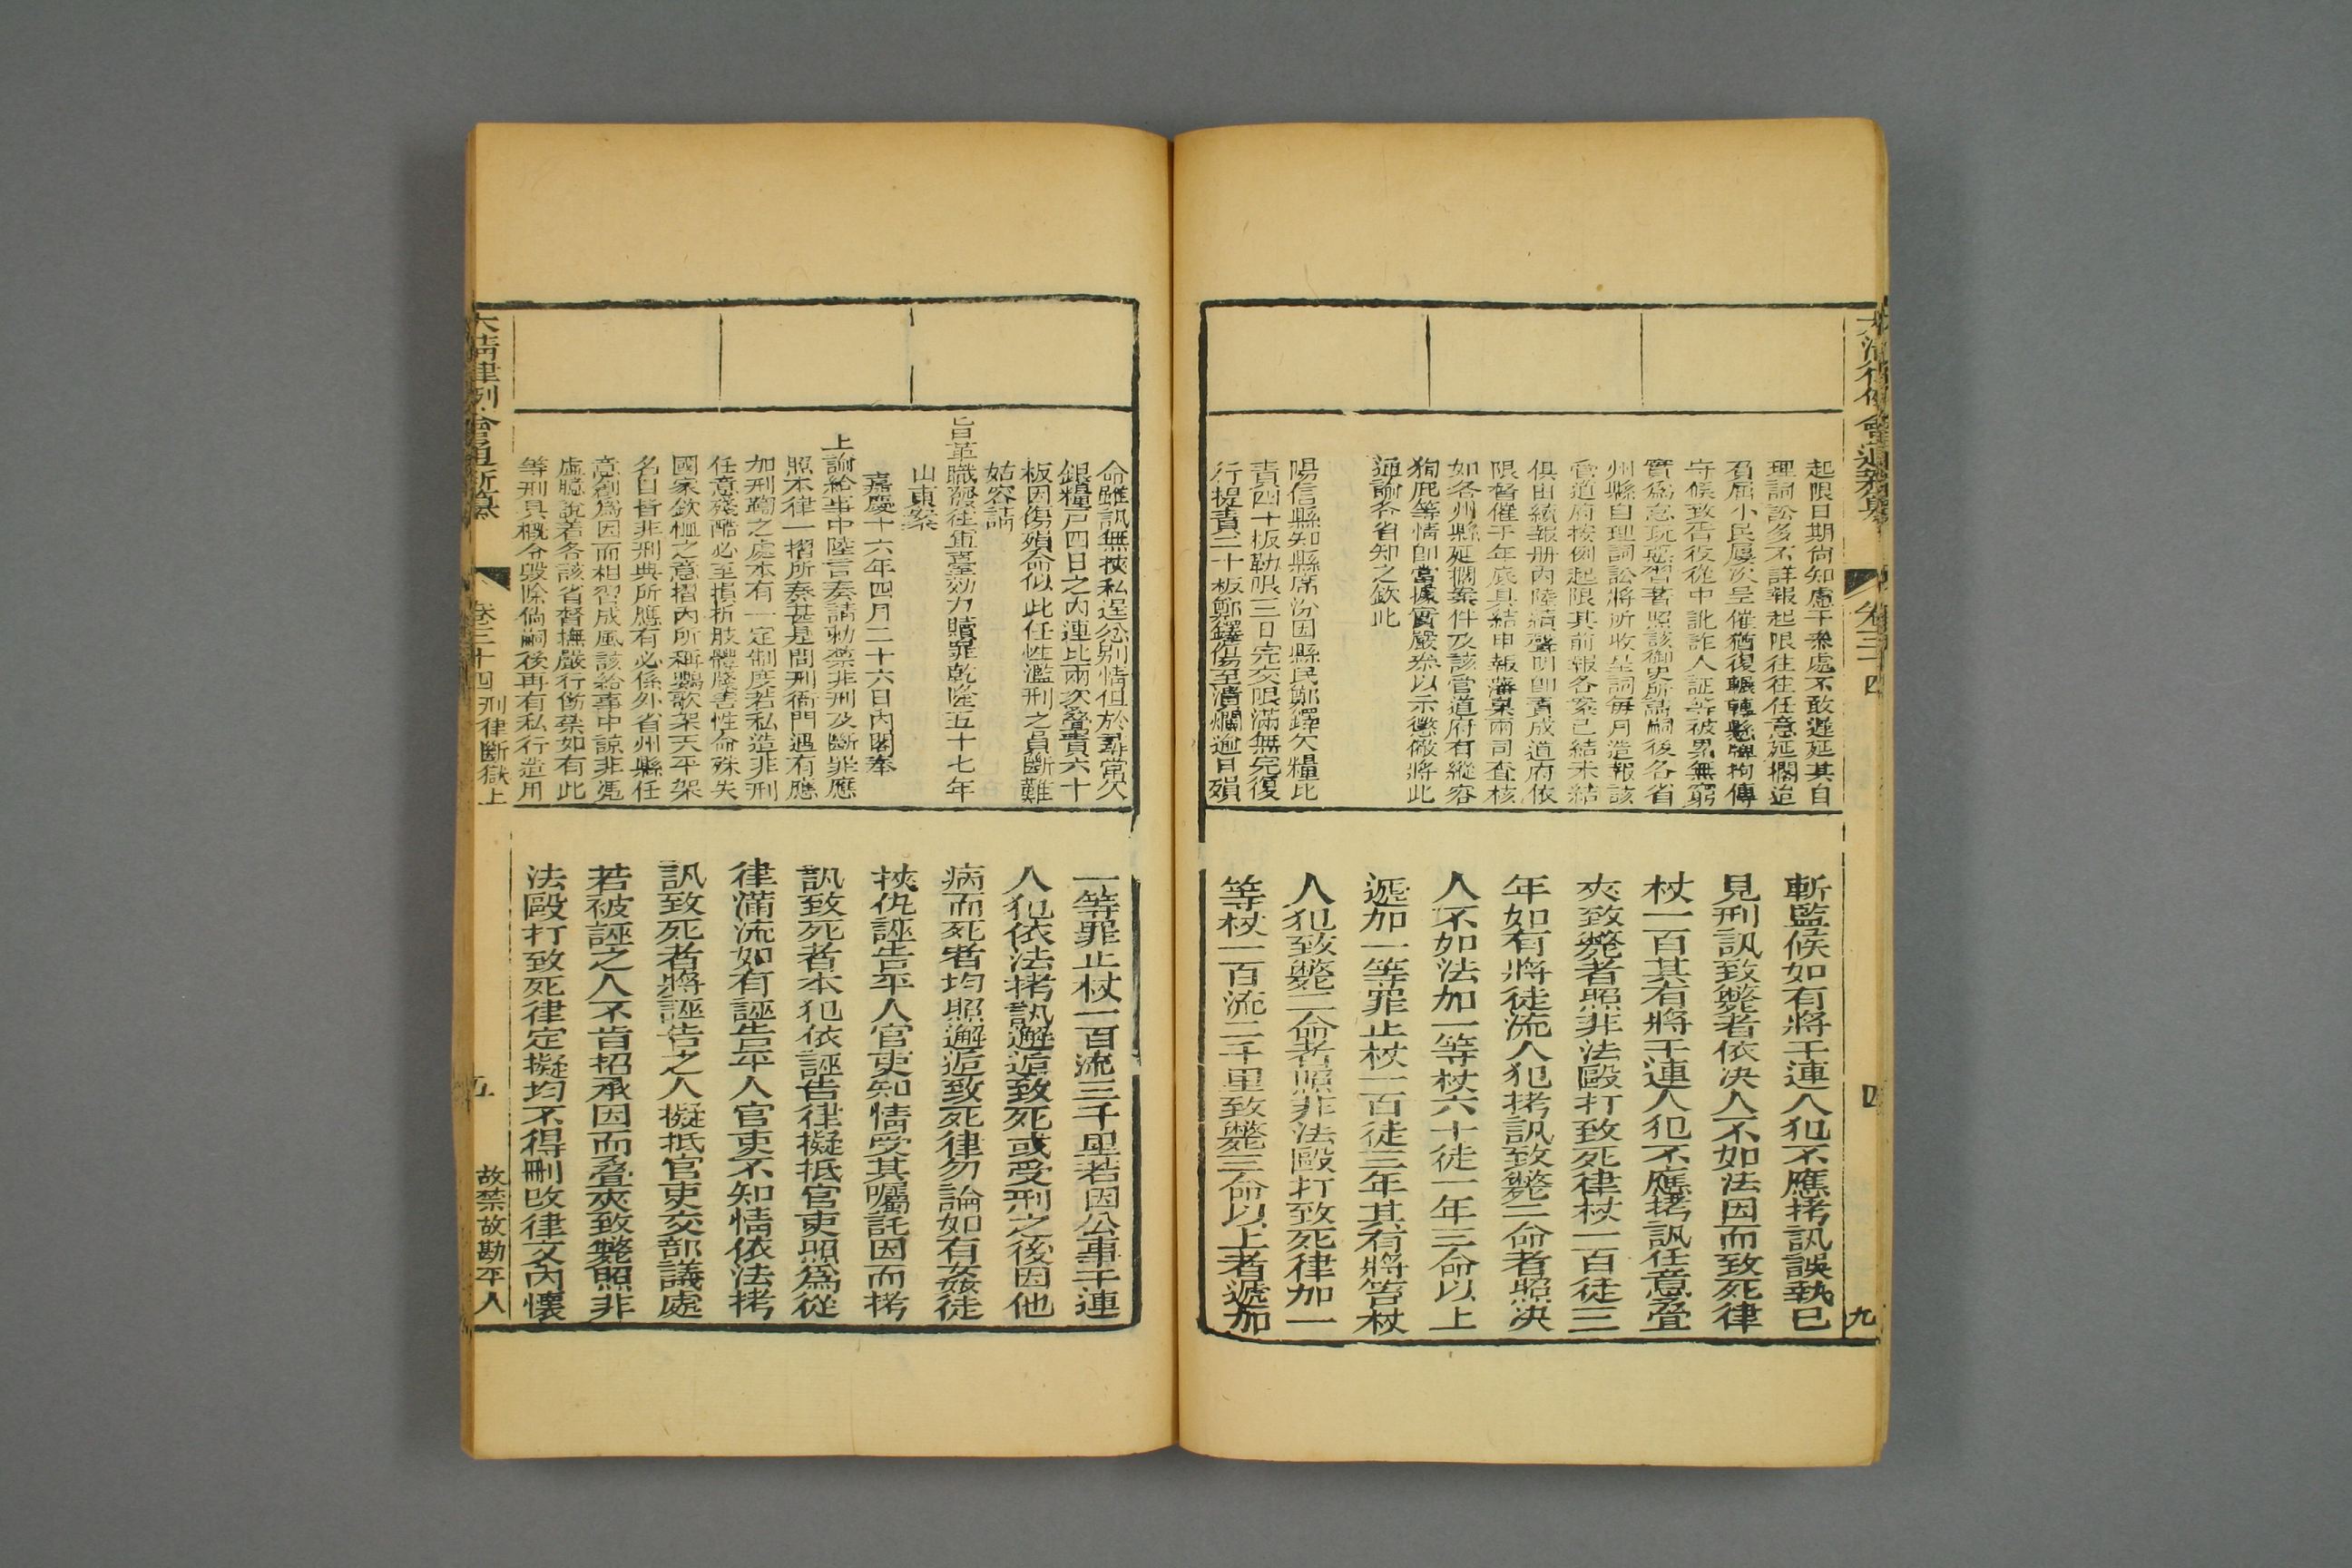 大清律例會通新纂
卷三十四
四
九
起限日期尚知慮干叅處不敢遲延其自
理詞訟多不詳報起限往往任意延擱迨
有屈小民屢次呈催猶復輾轉懸牌拘傳
守候致吏役從中訛詐人証等被累無窮
實爲怠玩惡習著照該御史所請嗣後各省
州縣自理詞訟將所收呈詞每月造報該
管道府按例起限其前報各案已結未結
俱由續報册內陸續聲明卽責成道府依
限督催于年底具結申報藩臬兩司查核
如各州縣延擱案件及該管道府有縱容
狥庇等情卽當據實嚴叅以示懲儆將此
通諭各省知之欽此
陽信縣知縣席汾因縣民鄭鐸欠糧比
責四十板勒限三日完交限滿無完復
行提責二十板鄭鐸傷至潰爛逾日殞
斬監候如有將干連人犯不應拷訊誤執已
見刑訊致斃者依决人不如法因而致死律
杖一百其有將干連人犯不應拷訊任意疊
夾致斃者照非法毆打致死律杖一百徒三
年如有將徒流人犯拷訊致斃二命者照决
人不如法加一等杖六十徒一年三命以上
遞加一等罪止杖一百徒三年其有將笞杖
人犯致斃二命者照非法毆打致死律加一
等杖一百流二千里致斃三命以上者遞加
命雖訊無挾私逞忿别情但於尋常欠
銀糧戸四日之內連比兩次叠責六十
板因傷殞命似此任性濫刑之員斷難
姑容請
旨革職發往軍臺効力贖罪乾隆五十七年
山東案
嘉慶十六年四月二十六日內閣奉
上諭給事中陸言奏請勅禁非刑及斷罪應
照本律一摺所奏甚是問刑衙門遇有應
加刑鞫之處本有一定制度若私造非刑
任意殘酷必至損折肢體戕害性命殊失
國家欽恤之意摺內所稱鸚歌架天平架
名目皆非刑典所應有必係外省州縣任
意創爲因而相習成風該給事中諒非憑
虛臆說着各該省督撫嚴行飭禁如有此
等刑具槪令毁除倘嗣後再有私行造用
一等罪止杖一百流三千里若因公事干連
人犯依法拷訊邂逅致死或受刑之後因他
病而死者均照邂逅致死律勿論如有姦徒
挾仇誣告平人官吏知情受其囑託因而拷
訊致死者本犯依誣告律擬抵官吏照爲從
律滿流如有誣告平人官吏不知情依法拷
訊致死者將誣告之人擬抵官吏交部議處
若被誣之人不肯招承因而疊夾致斃照非
法毆打致死律定擬均不得刪改律文內懷
大清律例會通新纂
卷三十四 刑律斷獄上
五
故禁故勘平人